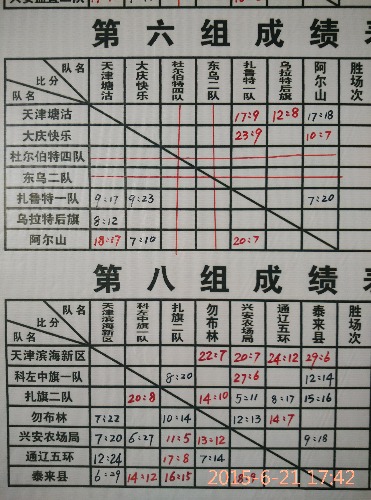 第六组成绩
队名 比分 队名 天津塘沽 大庆快乐 杜尔伯特四队 东乌二队 扎鲁特一队 乌拉特后旗 阿尔山 胜场次
天津塘沽 17:9 12:8 17:18
大庆快乐 23:9 10:7
杜尔伯特四队
东乌二队
扎鲁特一队 9:17 9:23 7:20
乌拉特后旗 8:12
阿尔山 18:17 7:10 20:7
第八组成绩
队名 比分 队名 天津滨海新区 科左中旗一队 扎旗二队 勿布林 兴安农场局 通辽五环 泰来县 胜场次
天津滨海新区 22:7 20:7 24:12 29:6
科左中旗一队 8:20 27:6 12:14
扎旗二队 20:8 14:10 5:11 8:17 15:16
勿布林 7:22 10:14 12:13 14:7
兴安农场局 7:20 6:27 11:5 13:12 9:18
通辽五环 12:24 17:8 7:14
泰来县 6:29 14:12 16:15
2015-6-21 17:42